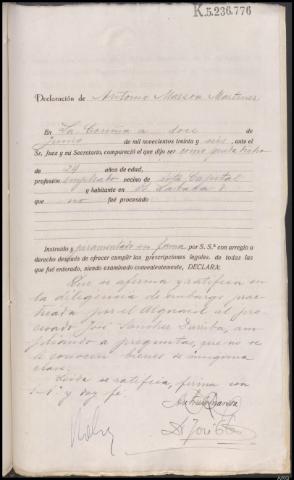 K.5.236.776
Declaración de Antonio Marcoa Martinez
En La Coruña a doce de
junio de mil novecientos treinta y seis, ante el
Sr. Juez y su Secretario, compareció el que dijo ser como queda dicho
de 24 años de edad,
profesión empleado vecino de esta Capital
y habitante en
que no fué procesado
Instruído y juramentado en forma por S. S.ª con arreglo a
derecho después de ofrecer cumplir las prescripciones legales de todas las
que fué enterado, siendo examinado convenientemente, DECLARA:
Que se afirma y ratifica en
la deligencia de embargo prac-
ticada por el Alguacil al pro-
cesado José Sanchez, am-
pliando a preguntas, que no se
le conocen bienes de ninguna
clase.
Leida se ratifica, firma con
S.Sª y doy fé.